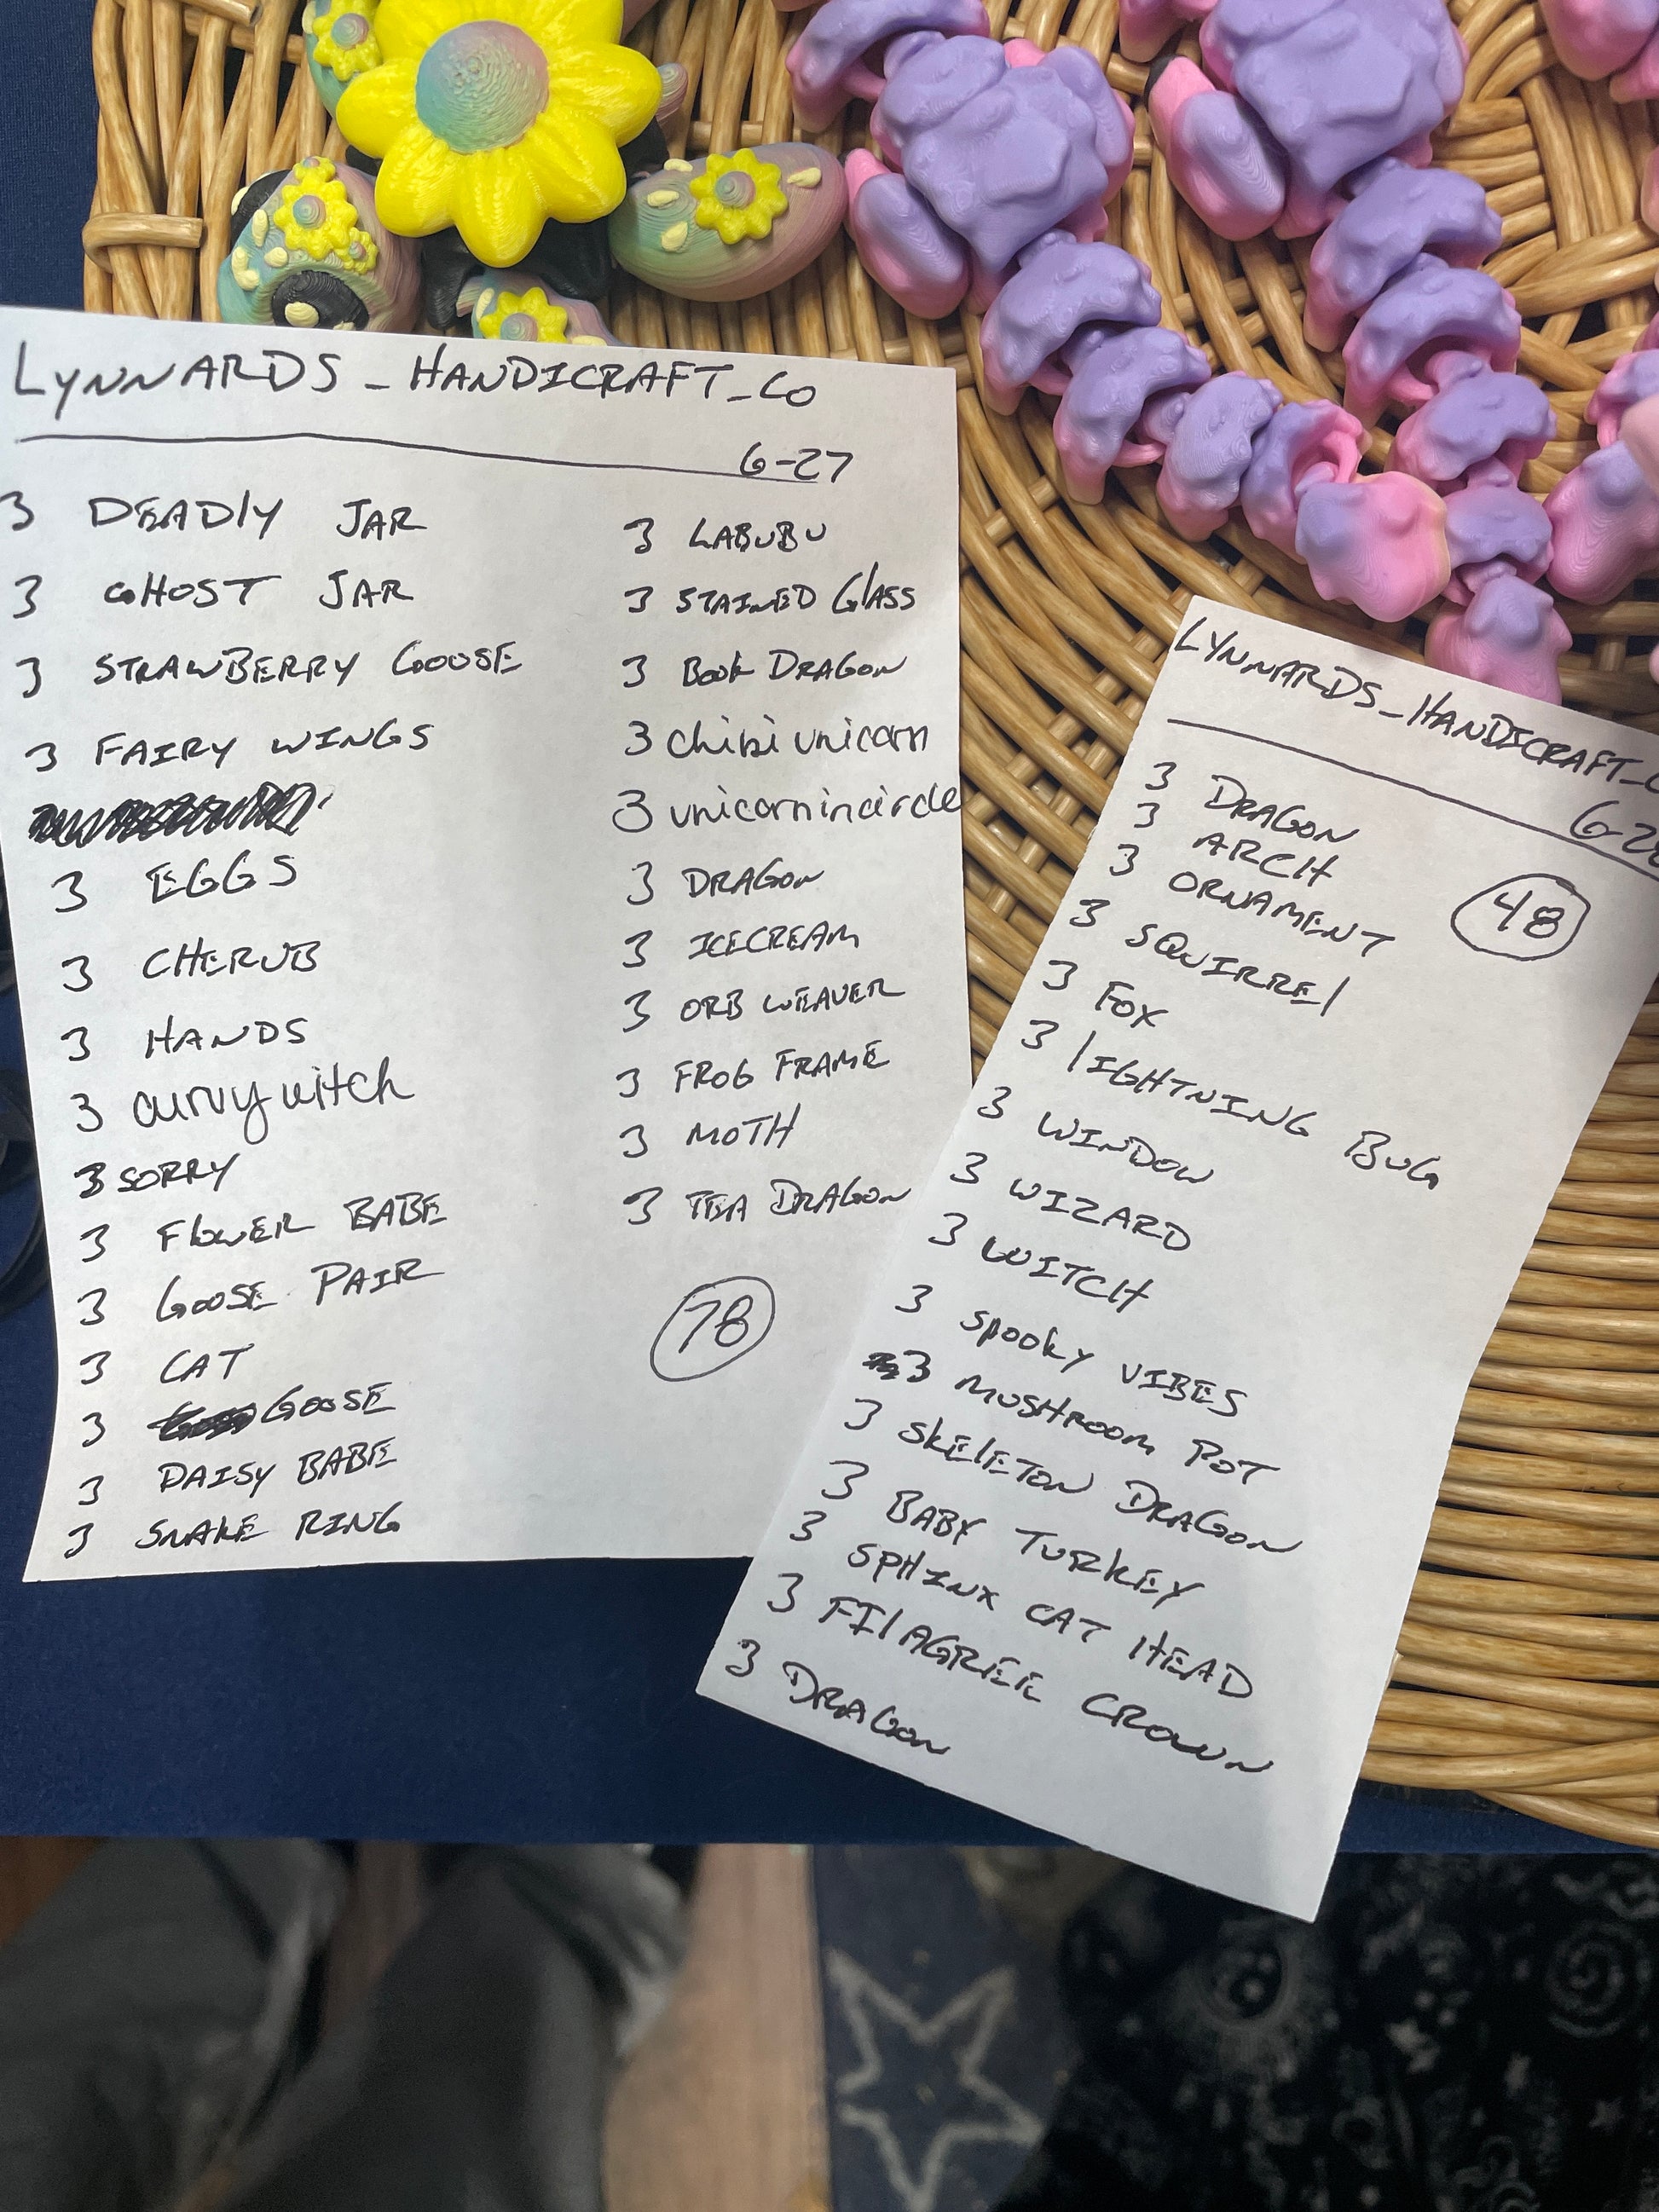 LYNNARDS_HANDICRAFT_CO
6-27
3 DEADLY JAR
3 GHOST JAR
3 STRAWBERRY GOOSE
3 FAIRY WINGS
3 EGGS
3 CHERUB
3 HANDS
3 curvy witch
3 SORRY
3 FLOWER BABE
3 GOOSE PAIR
3 CAT
3 GOOSE
3 DAISY BABE
3 SNAKE RING
3 LABUBU
3 STAINED GLASS
3 BOOK DRAGON
3 chibi unicorn
3 unicorn in circle
3 DRAGON
3 ICECREAM
3 ORB WEAVER
3 FROG FRAME
3 MOTH
3 TEA DRAGON
78
LYNNARDS_HANDICRAFT_C
6-2
3 DRAGON
3 ARCH
3 ORNAMENT
48
3 SQUIRREL
3 FOX
3 LIGHTNING BUG
3 WINDOW
3 WIZARD
3 WITCH
3 SPOOKY VIBES
3 MUSHROOM POT
3 SKELETON DRAGON
3 BABY TURKEY
3 SPHINX CAT HEAD
3 FILAGREE CROWN
3 DRAGON